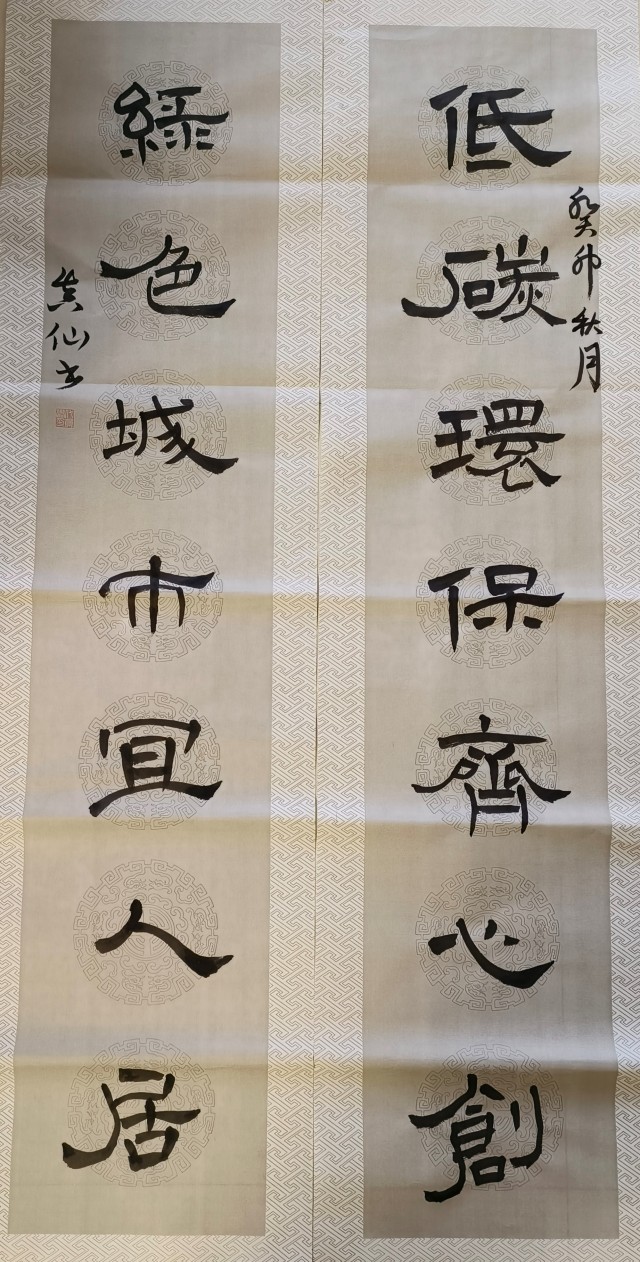 低碳環保齊心創
癸卯秋月
綠色城市宜人居
仙書